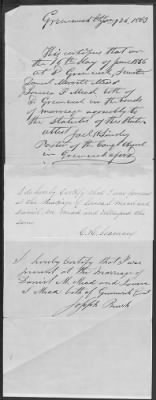 Greenwich May 26, 1863
This certifies that on
the 16th day of June 1856
at E Greenwich I united
Daniel Merritt Mead
Louisa S Mead both of
Greenwich in the bonds
of marriage according to
the statutes of this State
attest
Pastor of the Cong Church
in Greenwich
I do hereby certify that I was present
at the marriage of Louisa Mead and
Daniel M. Mead and witnessed the
same
I hereby certify that I was
present at the marriage of
Daniel M. Mead and Louisa
S Mead both of Greenwich Conn
Joseph Brush